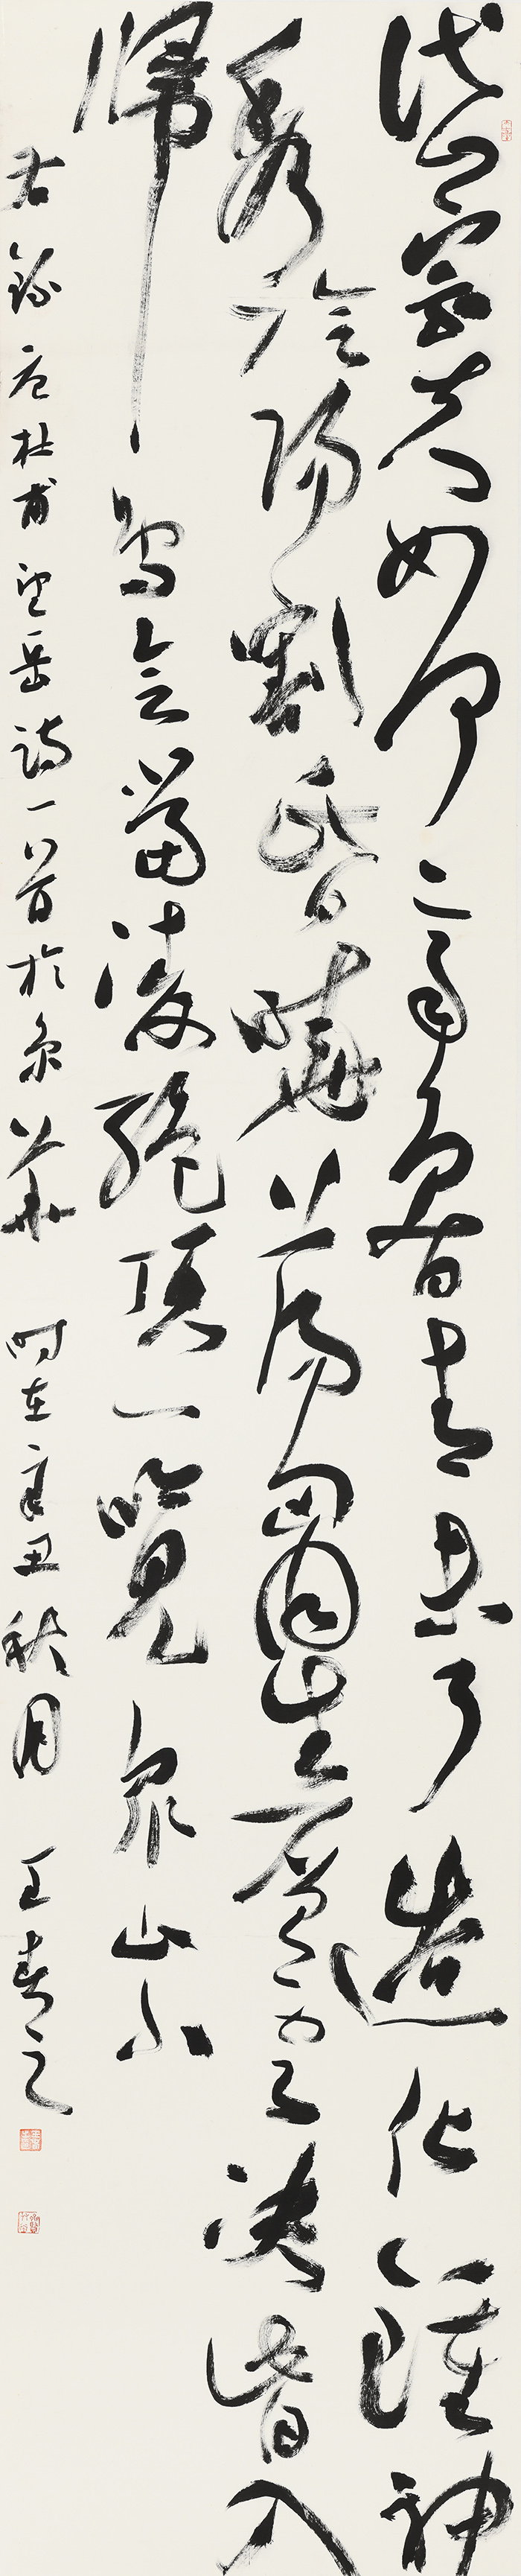 岱宗夫如何二齊魯青未了造化鍾神
秀陰陽割昏曉盪胸生層雲決眥入
歸鳥會當凌絕頂一覽眾山小
右錄唐杜甫望岳詩一首於京華 時在辛丑秋月 王春之